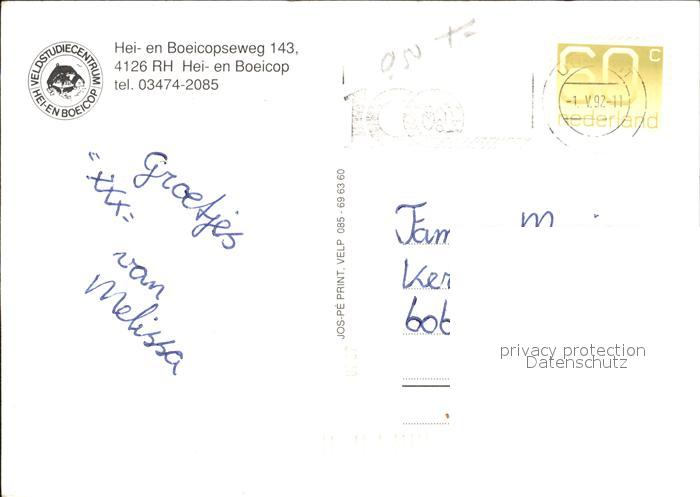 VELDSTUDIECENTRUM
HEI- EN BOEICOP
Hei- en Boeicopseweg 143,
4126 RH Hei- en Boeicop
tel. 03474-2085
0,50
60 c
-1. V. 92-11
nederland
Groetjes
"xxx"
van
Melissa
JOS-PÉ PRINT, VELP 085 - 69 63 60
Fam
Ker
privacy protection
Datenschutz